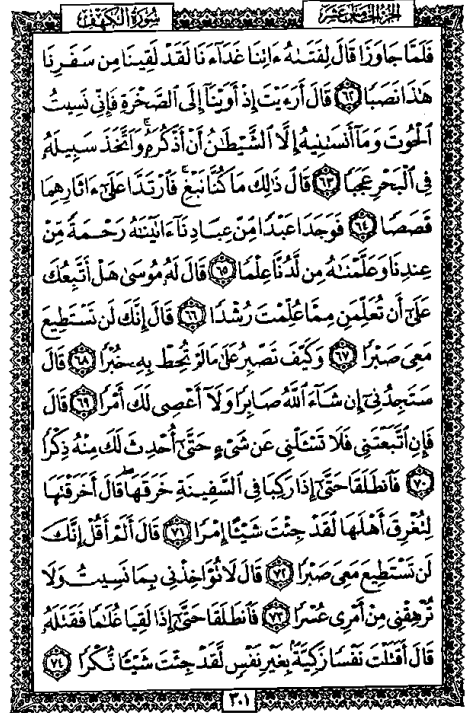 الجزء الخامس عشر
سورة الكهف
فَلَمَّا جَاوَزَا قَالَ لِفَتَىٰهُ ءَاتِنَا غَدَآءَنَا لَقَدْ لَقِينَا مِن سَفَرِنَا
هَٰذَا نَصَبًا ٦٢ قَالَ أَرَءَيْتَ إِذْ أَوَيْنَآ إِلَى ٱلصَّخْرَةِ فَإِنِّى نَسِيتُ
ٱلْحُوتَ وَمَآ أَنسَىٰنِيهُ إِلَّا ٱلشَّيْطَٰنُ أَنْ أَذْكُرَهُۥ وَٱتَّخَذَ سَبِيلَهُۥ
فِى ٱلْبَحْرِ عَجَبًا ٦٣ قَالَ ذَٰلِكَ مَا كُنَّا نَبْغِ فَٱرْتَدَّا عَلَىٰٓ ءَاثَارِهِمَا
قَصَصًا ٦٤ فَوَجَدَا عَبْدًا مِّنْ عِبَادِنَآ ءَاتَيْنَٰهُ رَحْمَةً مِّنْ
عِندِنَا وَعَلَّمْنَٰهُ مِن لَّدُنَّا عِلْمًا ٦٥ قَالَ لَهُۥ مُوسَىٰ هَلْ أَتَّبِعُكَ
عَلَىٰٓ أَن تُعَلِّمَنِ مِمَّا عُلِّمْتَ رُشْدًا ٦٦ قَالَ إِنَّكَ لَن تَسْتَطِيعَ
مَعِىَ صَبْرًا ٦٧ وَكَيْفَ تَصْبِرُ عَلَىٰ مَا لَمْ تُحِطْ بِهِۦ خُبْرًا ٦٨ قَالَ
سَتَجِدُنِىٓ إِن شَآءَ ٱللَّهُ صَابِرًا وَلَآ أَعْصِى لَكَ أَمْرًا ٦٩ قَالَ
فَإِنِ ٱتَّبَعْتَنِى فَلَا تَسْـَٔلْنِى عَن شَىْءٍ حَتَّىٰٓ أُحْدِثَ لَكَ مِنْهُ ذِكْرًا
٧٠ فَٱنطَلَقَا حَتَّىٰٓ إِذَا رَكِبَا فِى ٱلسَّفِينَةِ خَرَقَهَا ۖ قَالَ أَخَرَقْتَهَا
لِتُغْرِقَ أَهْلَهَا لَقَدْ جِئْتَ شَيْـًٔا إِمْرًا ٧١ قَالَ أَلَمْ أَقُلْ إِنَّكَ
لَن تَسْتَطِيعَ مَعِىَ صَبْرًا ٧٢ قَالَ لَا تُؤَاخِذْنِى بِمَا نَسِيتُ وَلَا
تُرْهِقْنِى مِنْ أَمْرِى عُسْرًا ٧٣ فَٱنطَلَقَا حَتَّىٰٓ إِذَا لَقِيَا غُلَٰمًا فَقَتَلَهُۥ
قَالَ أَقَتَلْتَ نَفْسًا زَكِيَّةًۢ بِغَيْرِ نَفْسٍ لَّقَدْ جِئْتَ شَيْـًٔا نُّكْرًا ٧٤
٣٠١